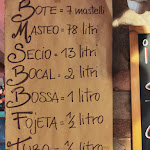 BOTE = 7 mastelli
MASTEO = 78 litri
SECIO = 13 litri
BOCAL = 2 litri
BOSSA = 1 litro
FOJETA = ½ litro